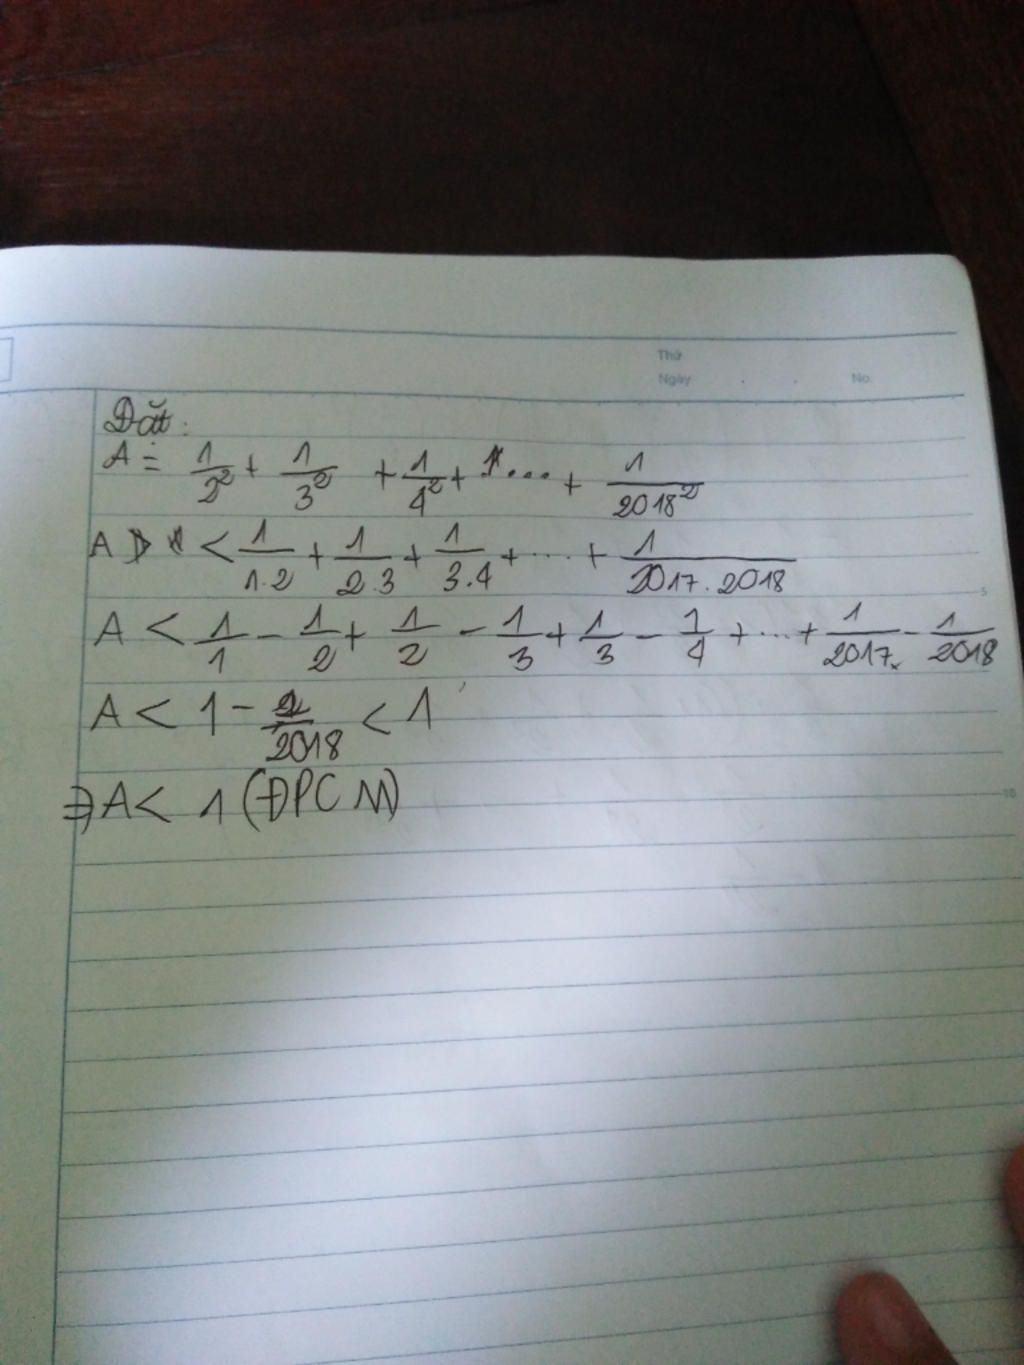 Thứ
Ngày . . No.
Đặt:
A = 1/2² + 1/3² + 1/4² + ... + 1/2018²
A < 1/1.2 + 1/2.3 + 1/3.4 + ... + 1/2017.2018
A < 1/1 - 1/2 + 1/2 - 1/3 + 1/3 - 1/4 + ... + 1/2017 - 1/2018
A < 1 - /2018 < 1
⇒ A < 1 (ĐPCM)
5
10